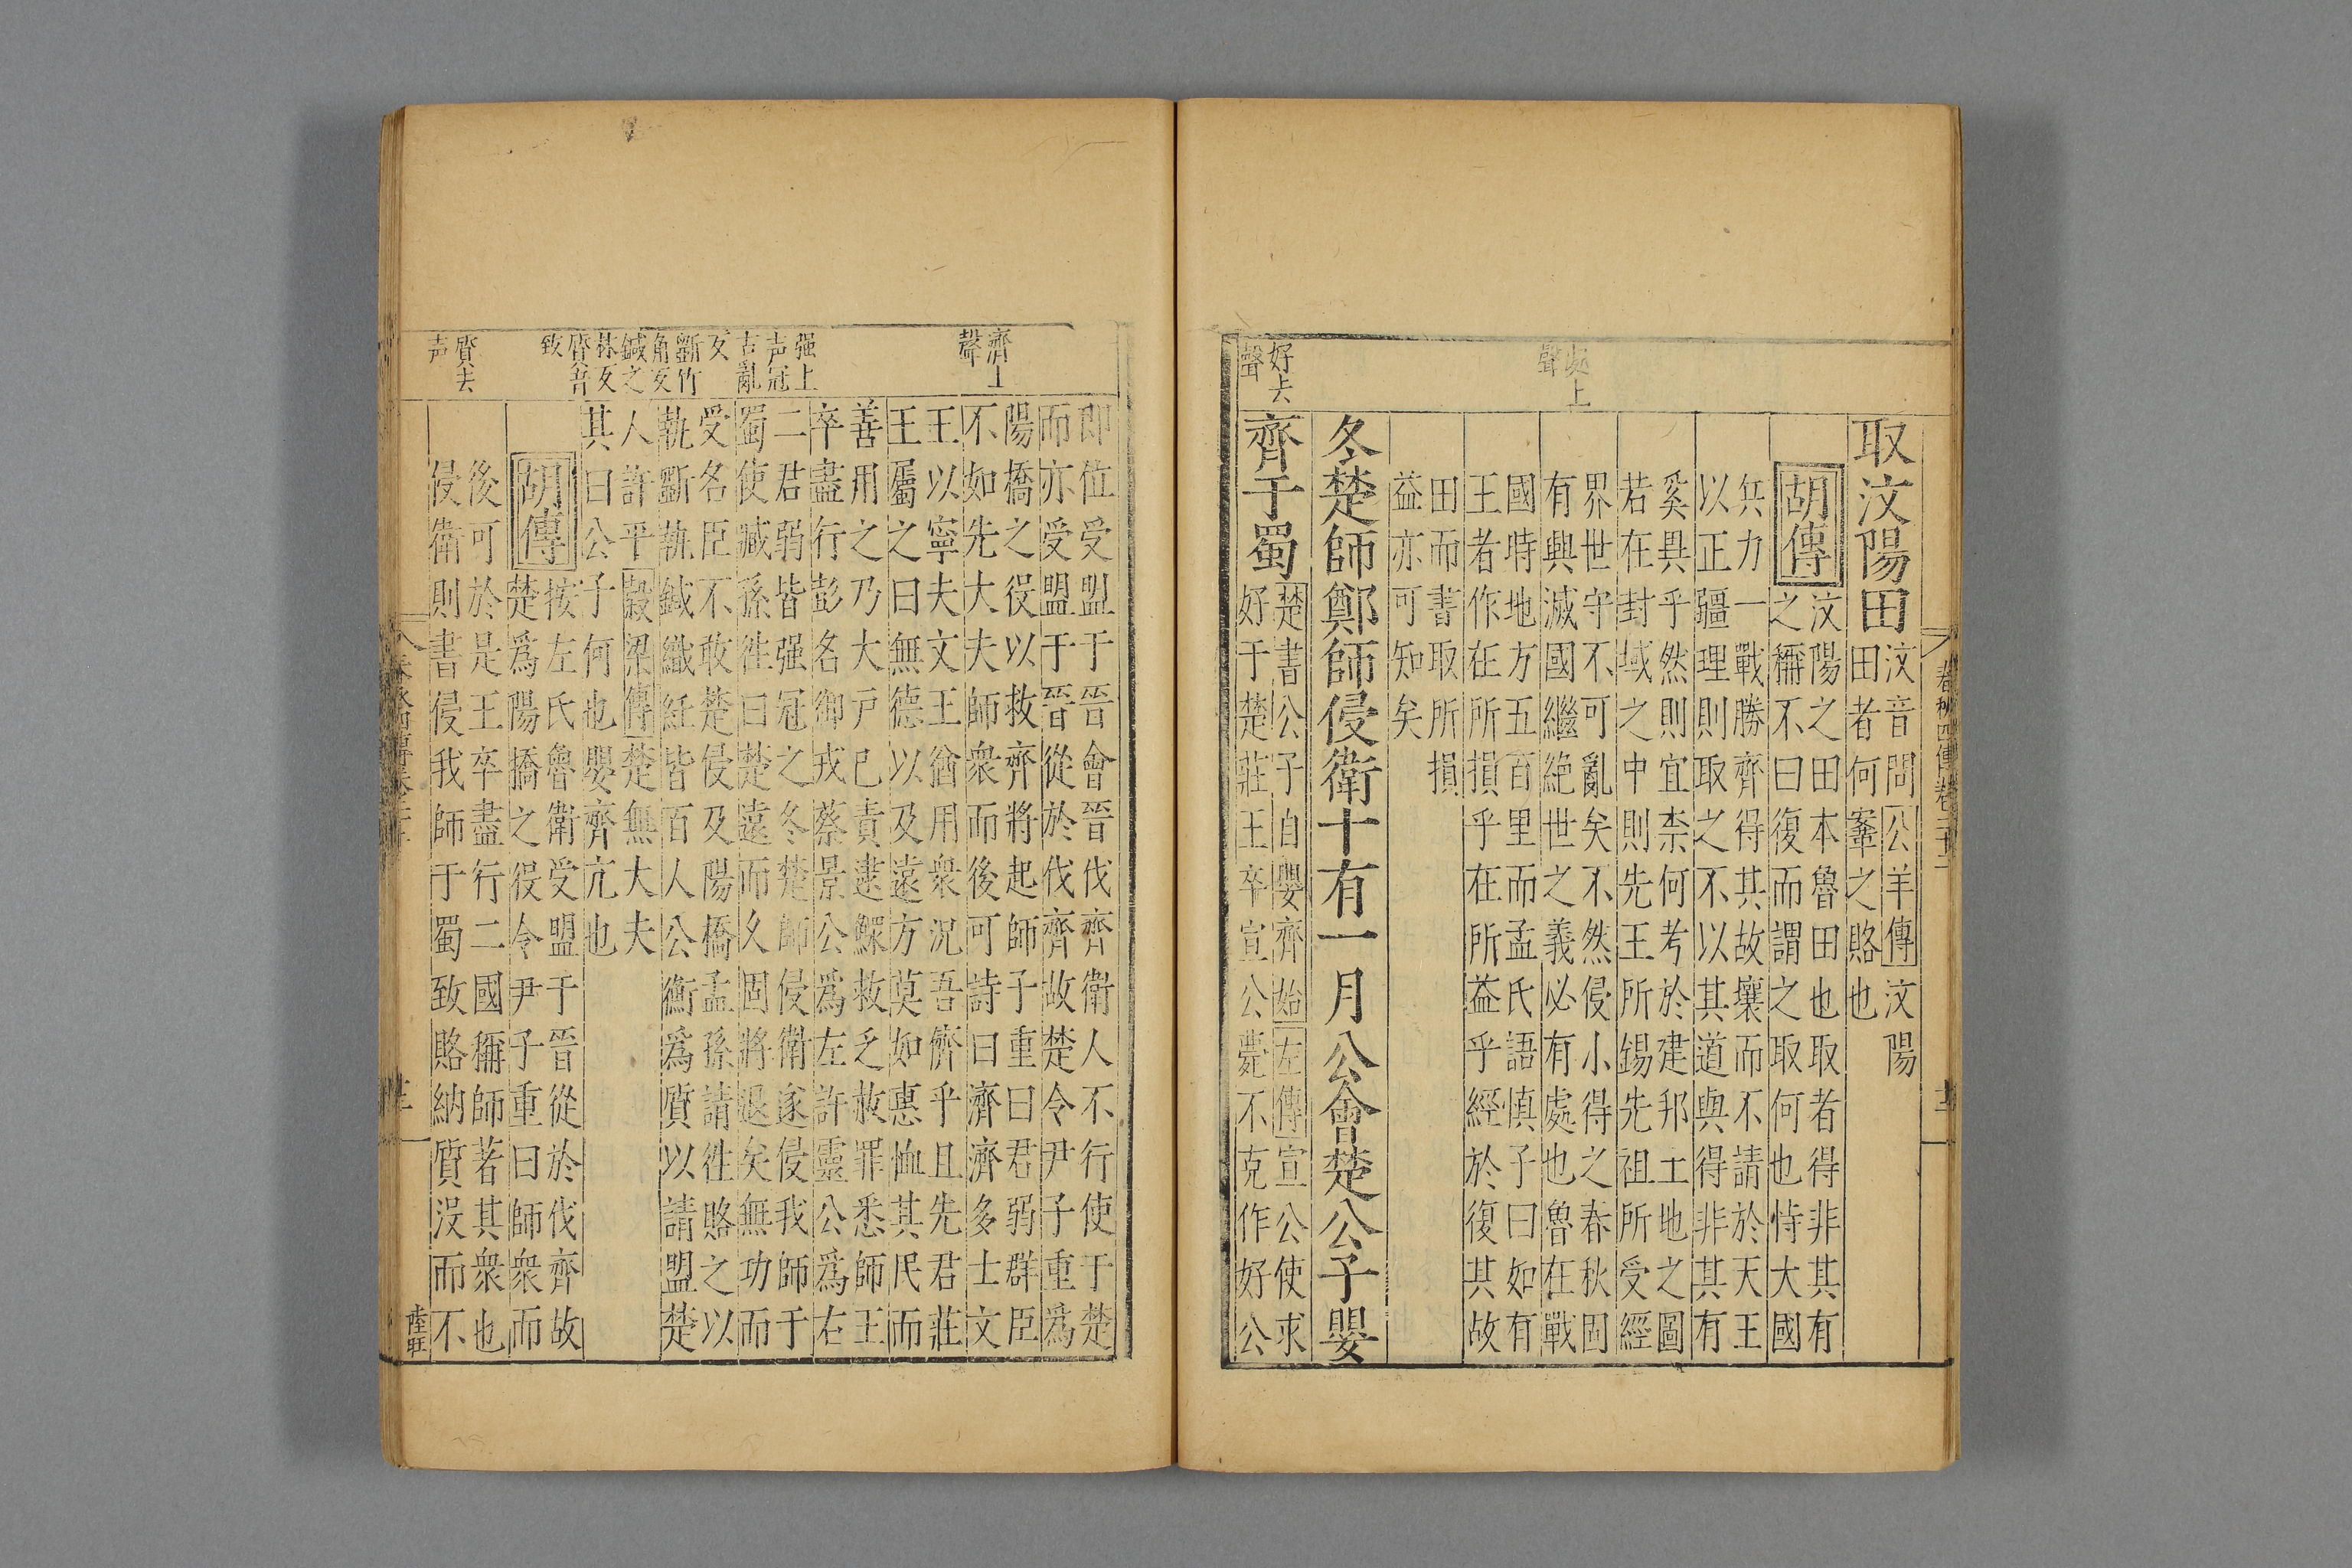 春秋四傳卷二十二
取汶陽田
汶音問公羊傳汶陽
田者何鞌之賂也
胡傳
汶陽之田本魯田也取者得非其有
之稱不曰復而謂之取何也恃大國
兵力一戰勝齊得其故壤而不請於天王
以正疆理則取之不以其道與得非其有
奚異乎然則宜柰何考於建邦土地之圖
若在封域之中則先王所錫先祖所受經
界世守不可亂矣不然侵小得之春秋固
有興滅國繼絶世之義必有處也魯在戰
國時地方五百里而孟氏語慎子曰如有
王者作在所損乎在所益乎經於復其故
田而書取所損
益亦可知矣
冬楚師鄭師侵衛十有一月公會楚公子嬰
齊于蜀
楚書公子自嬰齊始左傳宣公使求
好于楚莊王卒宣公薨不克作好公
處上
聲
好去
聲
即位受盟于晉會晉伐齊衛人不行使于楚
而亦受盟于晉從於伐齊故楚令尹子重爲
陽橋之役以救齊將起師子重曰君弱群臣
不如先大夫師衆而後可詩曰濟濟多士文
王以寧夫文王猶用衆況吾儕乎且先君莊
王屬之曰無德以及遠方莫如惠恤其民而
善用之乃大戸已責逮鰥救乏赦罪悉師王
卒盡行彭名御戎蔡景公爲左許靈公爲右
二君弱皆强冠之冬楚師侵衛遂侵我師于
蜀使臧孫徃曰楚遠而久固將退矣無功而
受名臣不敢楚侵及陽橋孟孫請徃賂之以
執斲執鍼織紝皆百人公衡爲質以請盟楚
人許平穀梁傳楚無大夫
其曰公子何也嬰齊亢也
胡傳
按左氏魯衛受盟于晉從於伐齊故
楚爲陽橋之役令尹子重曰師衆而
後可於是王卒盡行二國稱師著其衆也
侵衛則書侵我師于蜀致賂納質没而不
濟上
聲
强上
声冠
古亂
反
斲竹
角反
鍼之
林反
質音
致
質去
声